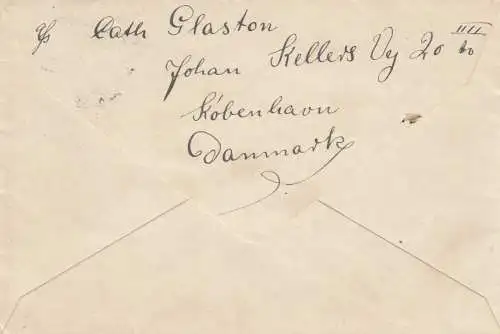 Cath Glaston
Johan Kellers Vej 20 IIII to
København
Danmark